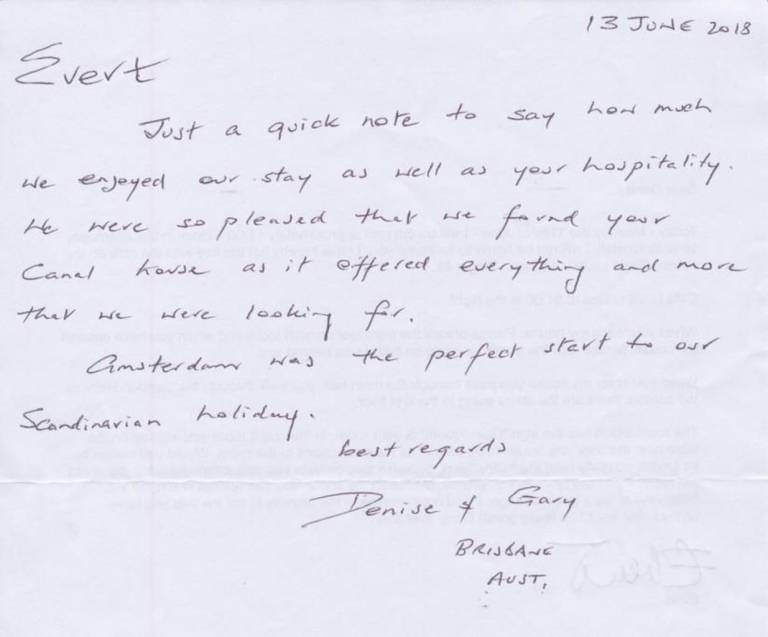 13 JUNE 2018
Evert
Just a quick note to say how much
we enjoyed our stay as well as your hospitality.
We were so pleased that we found your
Canal house as it offered everything and more
that we were looking for.
Amsterdam was the perfect start to our
Scandinavian holiday.
best regards
Denise & Gary
BRISBANE
AUST.